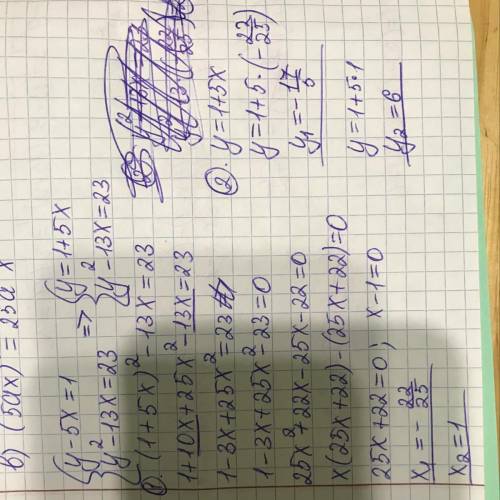 в) (5ax) = 25a x
{y-5x=1 => {y=1+5x
{y²-13x=23 {y²-13x=23
① (1+5x)²-13x=23
1+10x+25x²-13x=23
1-3x+25x²=23
1-3x+25x²-23=0
25x²+22x-25x-22=0
x(25x+22)-(25x+22)=0
25x+22=0; x-1=0
x₁=-22/25
x₂=1
② y=1+5x
y=1+5·(-22/25)
y₁=-17/5
y=1+5·1
y₂=6